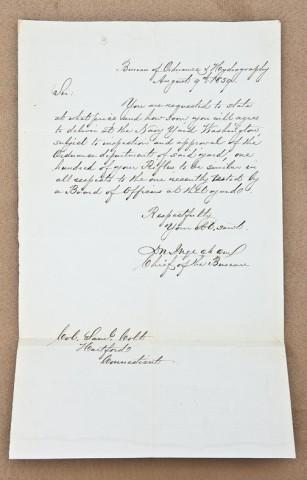 Bureau of Ordnance & Hydrography
August 9th 1859.
Sir:
You are requested to state
at what price, and how soon, you will agree
to deliver at the Navy Yard Washington,
subject to inspection and approval of the
Ordnance department of said yard, one
hundred of your Rifles to be similar in
all respects to the one recently tested by
a Board of Officers at that yard.
Respectfully
Your Ob. Servt.
D. N. Ingraham
Chief of the Bureau
Col. Saml. Colt
Hartford
Connecticut